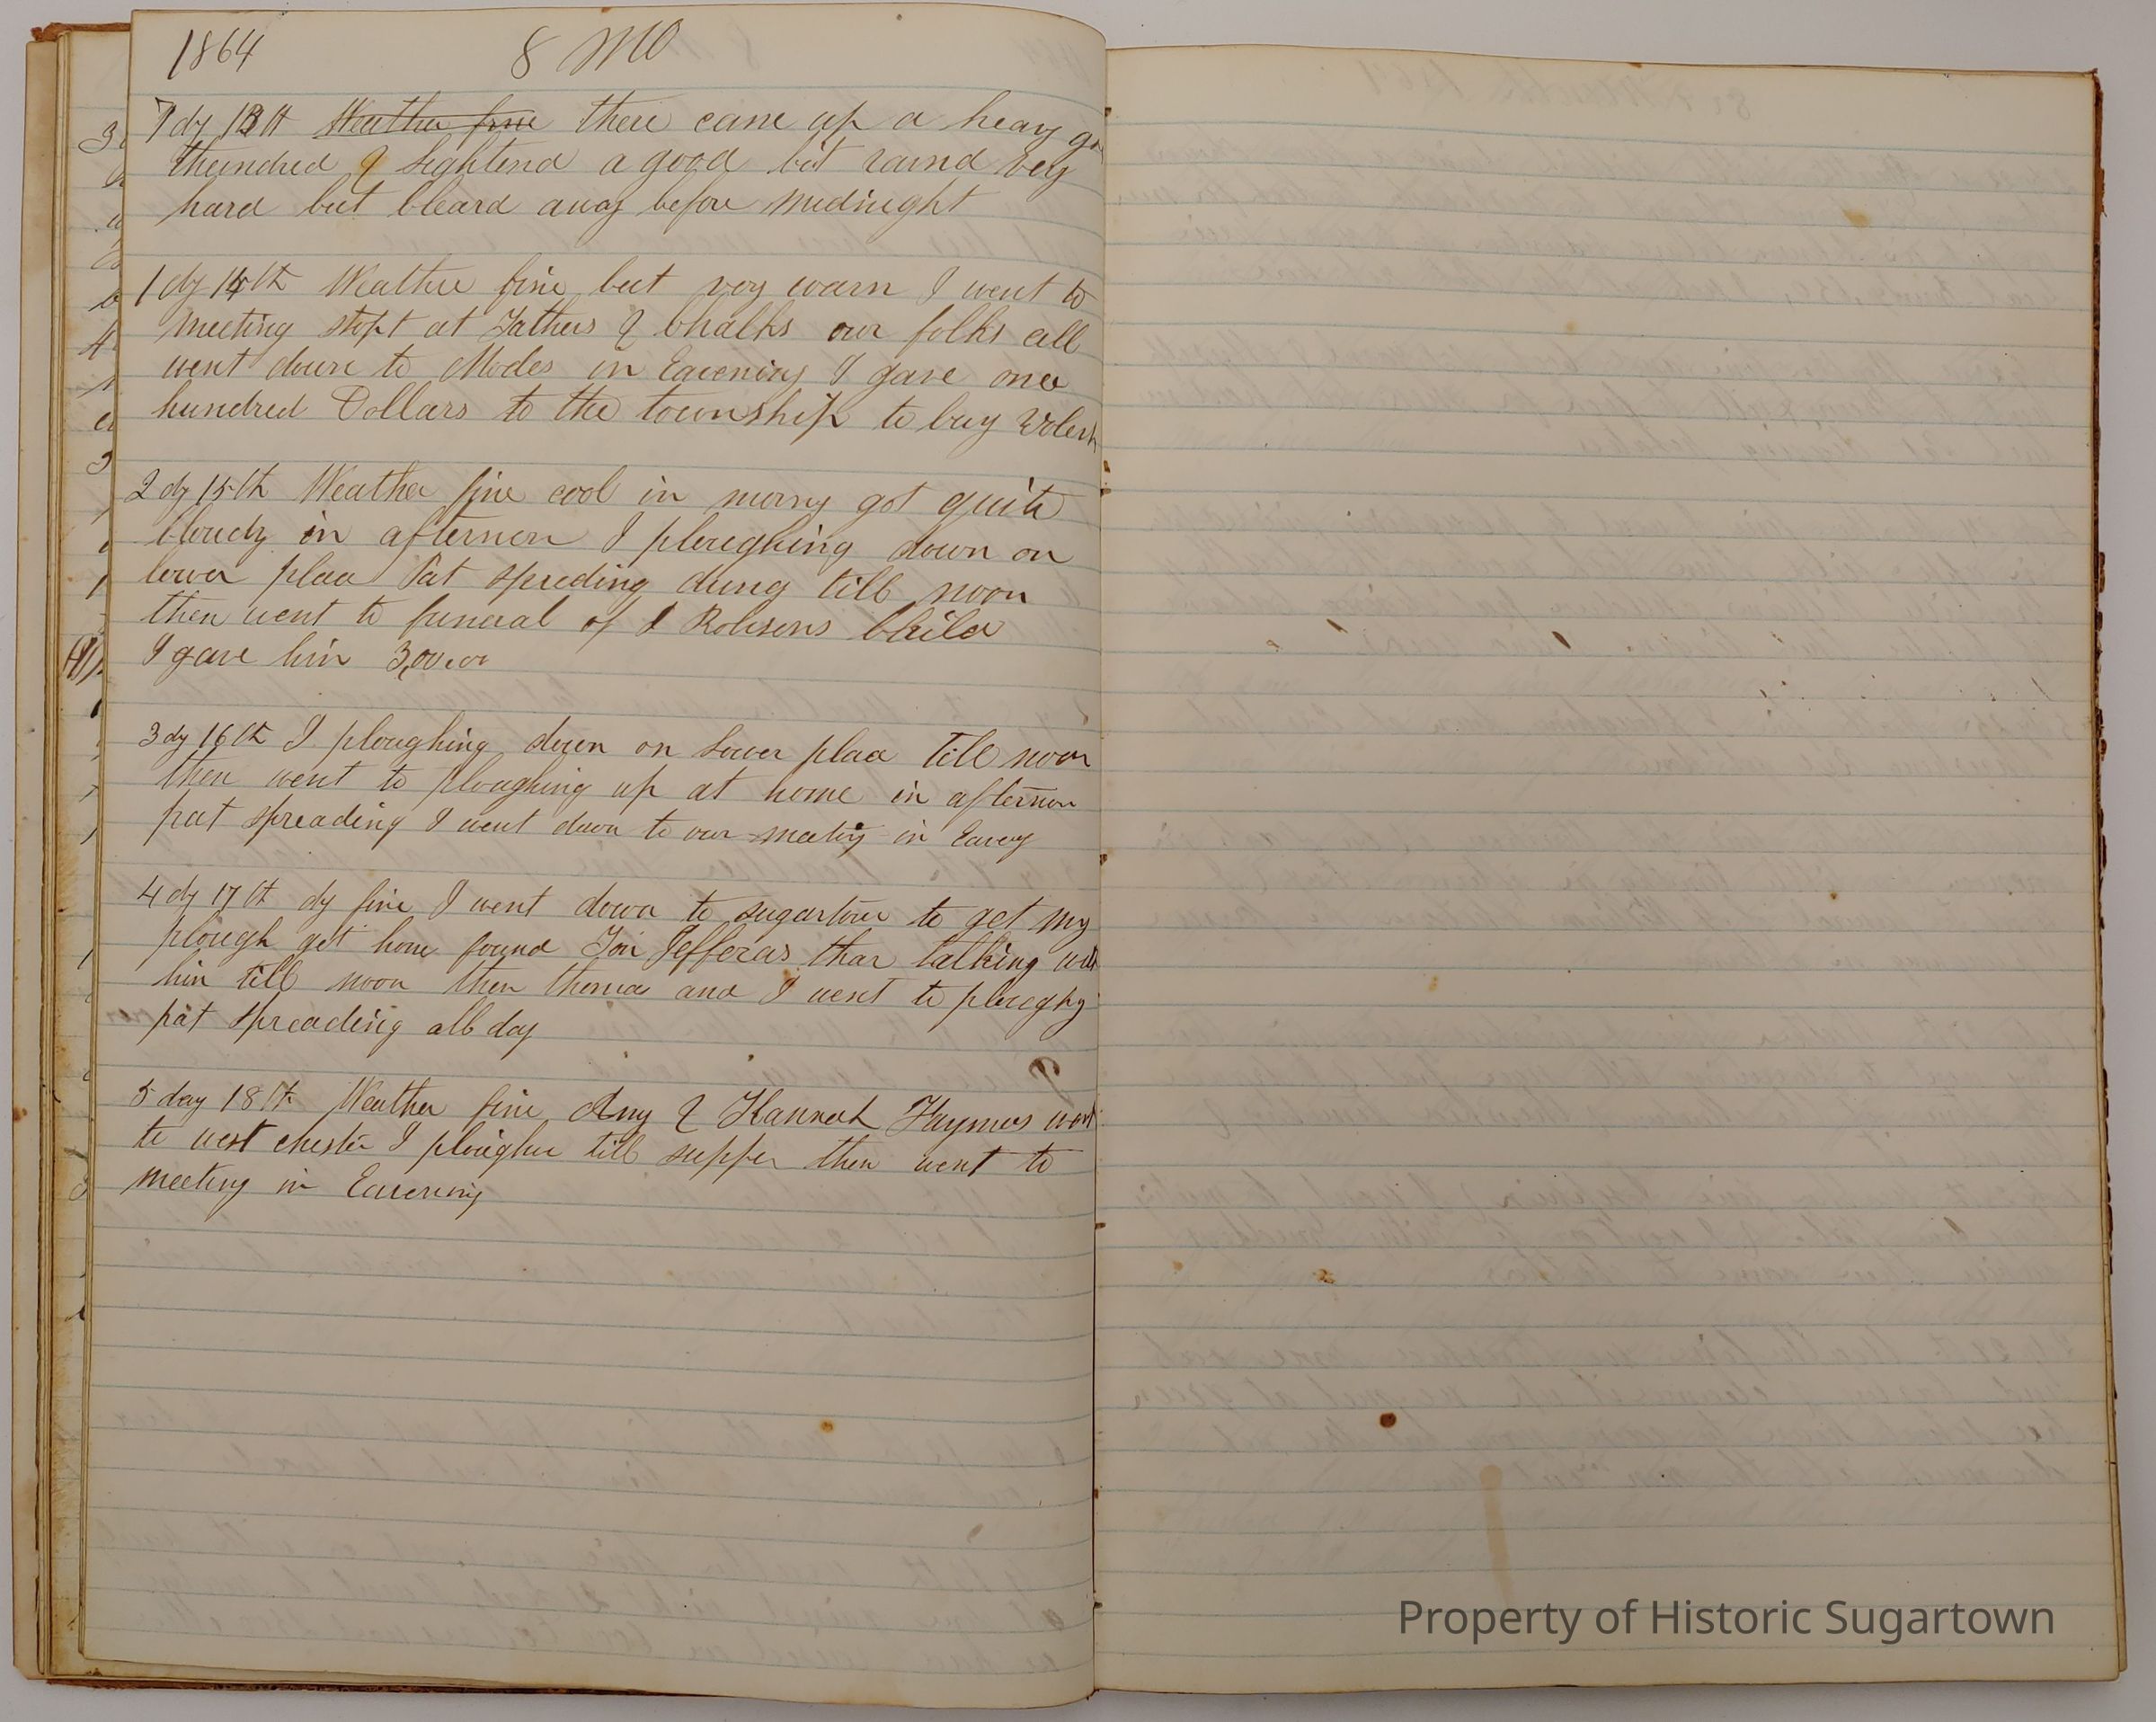 1864 8 MO
7 dy 13th ~~Weather fine~~ there came up a heavy
thundred & Lightend a good bit raind very
hard but Cleard away before midnight
1 dy 14th Weather fine but very warm I went to
meeting stopt at Fathers & Chalks our folks all
went down to Modes in Eavening I gave one
hundred Dollars to the township to buy
2 dy 15th Weather fine cool in morng got quite
Cloudy in afternon I ploughing down on
lower place Pat spreding dung till noon
then went to funeral of I Robisons Child
I gave him 3,00.00
3 dy 16th I ploughing down on Lower place till noon
then went to ploughing up at home in afternon
pat spreading I went down to our meeting in Eaveng
4 dy 17th dy fine I went down to sugartown to get my
plough get home found Jefferas thar talking with
him till noon then thomas and I went to ploughg
pat spreading all day
5 day 18th Weather fine Amy & Hannah Haymes went
to west chester I ploughing till supper then went to
meeting in Eavening
Property of Historic Sugartown